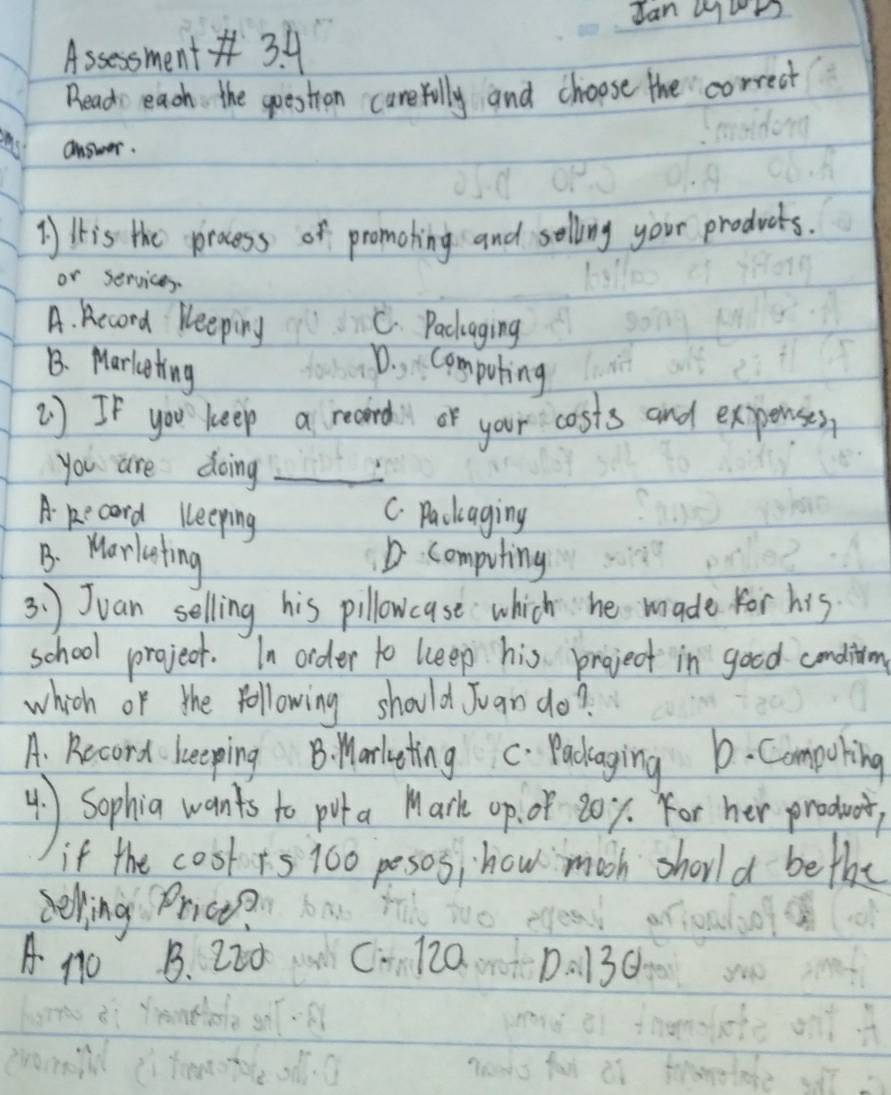 Jan
Assessment # 3.4
Read each the question carefully and choose the correct
answer.
1.) It is the process of promoting and selling your products.
or services.
A. Record Keeping C. Packaging
B. Marketing D. Computing
2.) If you keep a record of your costs and expenses,
you are doing ______.
A. Record Keeping C. Packaging
B. Marketing D. Computing
3.) Juan selling his pillowcase which he made for his
school project. In order to keep his project in good condition,
which of the following should Juan do?
A. Record keeping B. Marketing C. Packaging D. Computing
4.) Sophia wants to put a Mark up of 20% for her product,
if the cost is 100 pesos, how much should be the
Selling Price?
A. 110 B. 220 C. 120 D. 130